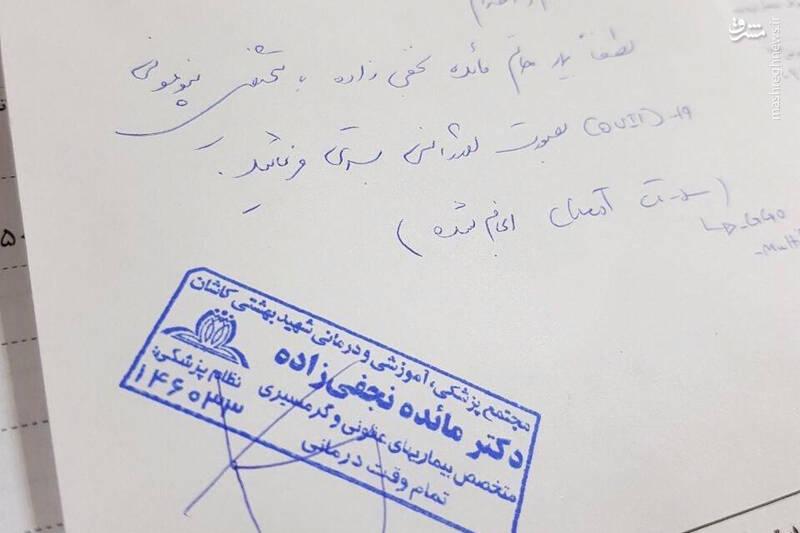 مشرق
mashreghnews.ir
لطفاً بیمار خانم مائده نجفی زاده با تشخیص پنومونی
COVID-19 بصورت اورژانسی بستری فرمائید.
(سی تی اسکن انجام شده)
GGO
Multi
مجتمع پزشکی، آموزشی و درمانی شهید بهشتی کاشان
دکتر مائده نجفی‌زاده
متخصص بیماریهای عفونی و گرمسیری
تمام وقت درمانی
نظام پزشکی:
۱۴۶۰۳۳